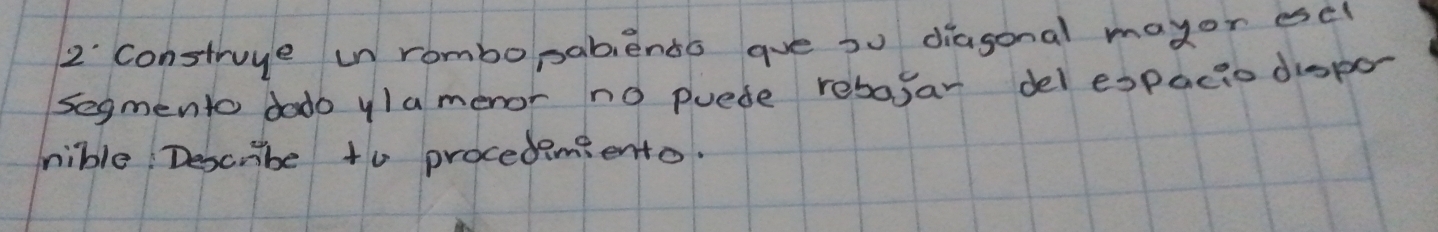 2. Construye un rombo, sabiendo que su diagonal mayor es el
segmento dado y la menor no puede rebajar del espacio dispo-
nible. Describe tu procedimiento.